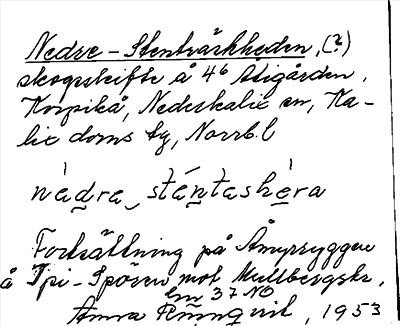 Nedre-Stenträskheden, (?)
skogsskifte å 4⁶ Stigården,
Korpikå, Nederkalix sn, Ka-
lix doms tg, Norrb.l
nèdra stántashèra
Fortsättning på Åmyrryggen
å Spi-Sporren mot Mullbergskr,
bm 37 NO
Anna Rönnqvist, 1953